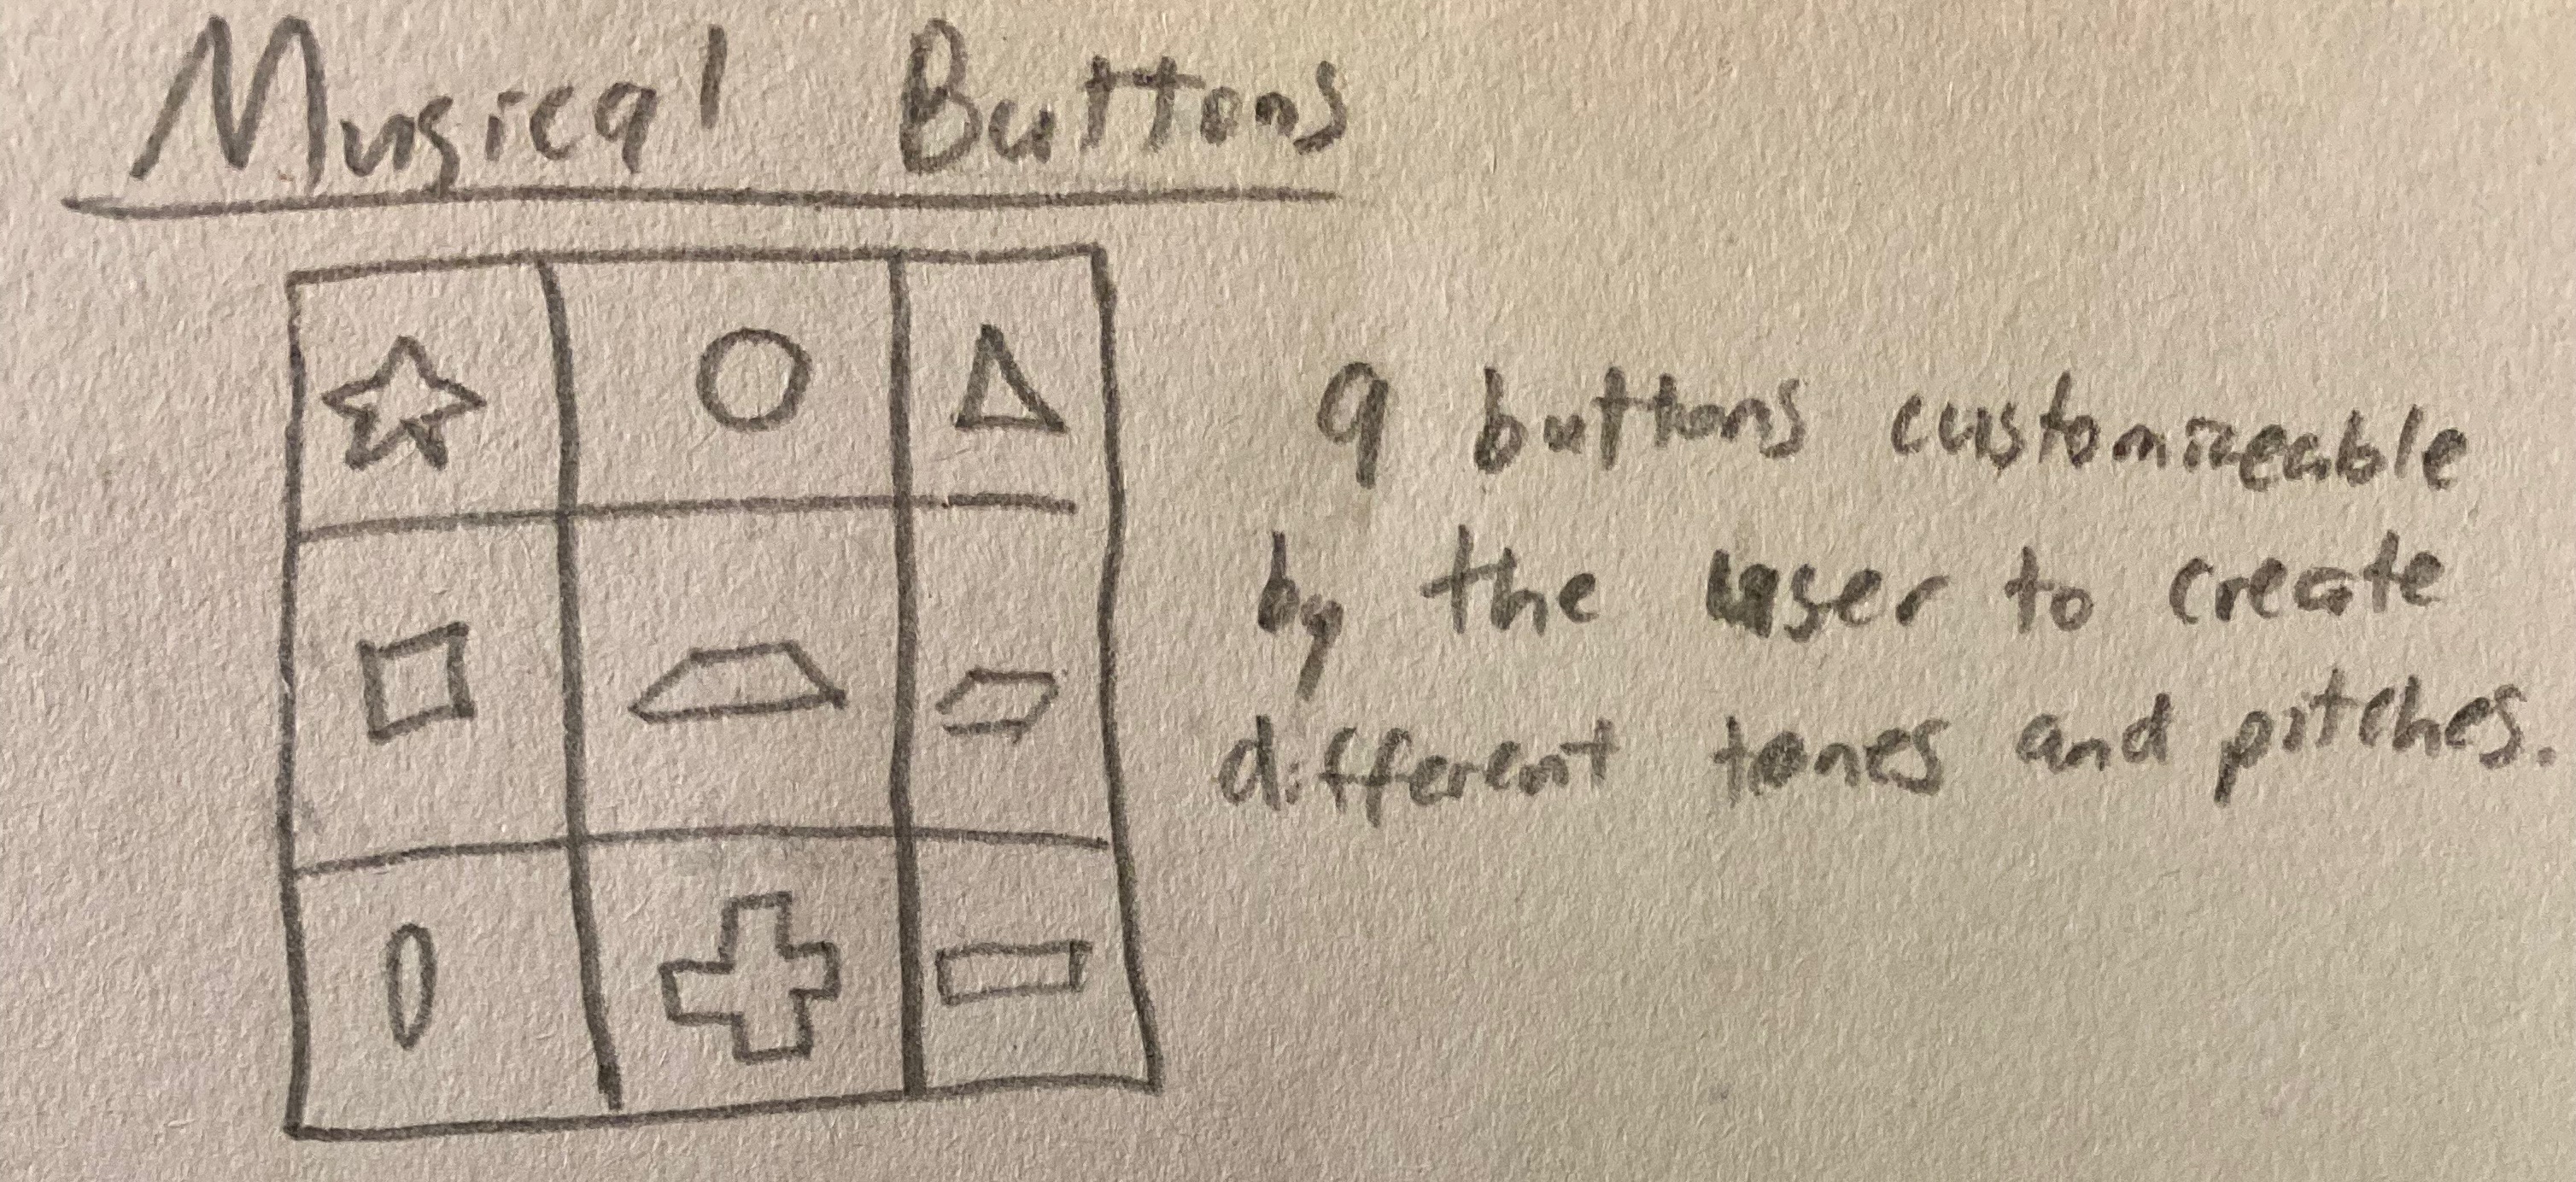 Musical Buttons
9 buttons customizeable
by the user to create
different tones and pitches.